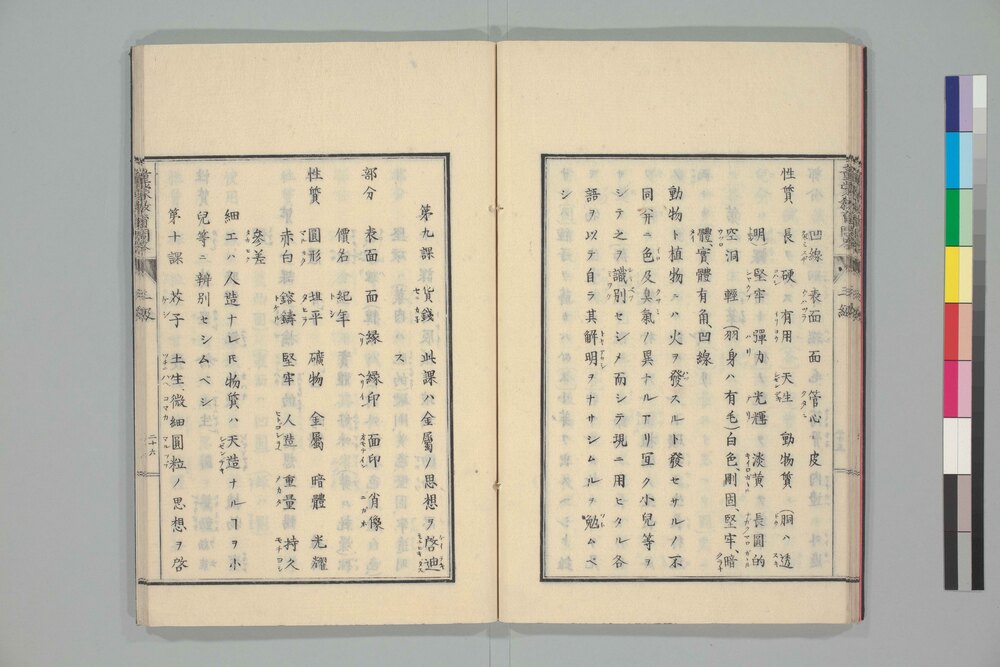 凹線 表面 端面 管心 皮
性質 長 硬 有用 天生 動物質 (胴ハ透
明 堅牢 彈力 光輝 淡黄 長圓的
空洞 輕 (羽身ハ有毛)白色、剛固、堅牢、暗
體實體有角、凹線
動物ト植物ニハ火ヲ發スルト發セサルノ不
同并ニ色及臭氣ノ異ナルアリ宜ク小兒等ヲ
シテ之ヲ識別セシメ而シテ現ニ用ヒタル各
語ヲ以テ自ラ其解明ヲナサシムルヲ勉ムベ
シ
第九課 貨錢 此課ハ金屬ノ思想ヲ啓迪ス
部分 表面 面 緣 緣印 面印 肖像
價名 紀年
性質 圓形 坦平 礦物 金屬 暗體 光耀
赤白 鎔鑄 堅牢 人造 重量 持久
參差
細工ハ人造ナレ𪜈物質ハ天造ナルヿヲ小
兒等ニ辨別セシムベシ
第十課 芥子 土生、微細圓粒ノ思想ヲ啓
二十六